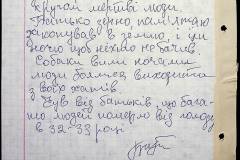 кругом мертві люди.
Батько зерно, пам'ятаю
закопував в землю, і ци
ночю щоб ніхто не бачив.
Собаки вили ночами
люди боялися виходити
з своїх хатів.
Був від батьків, що бага-
то людей померло від голоду
в 32-33 році